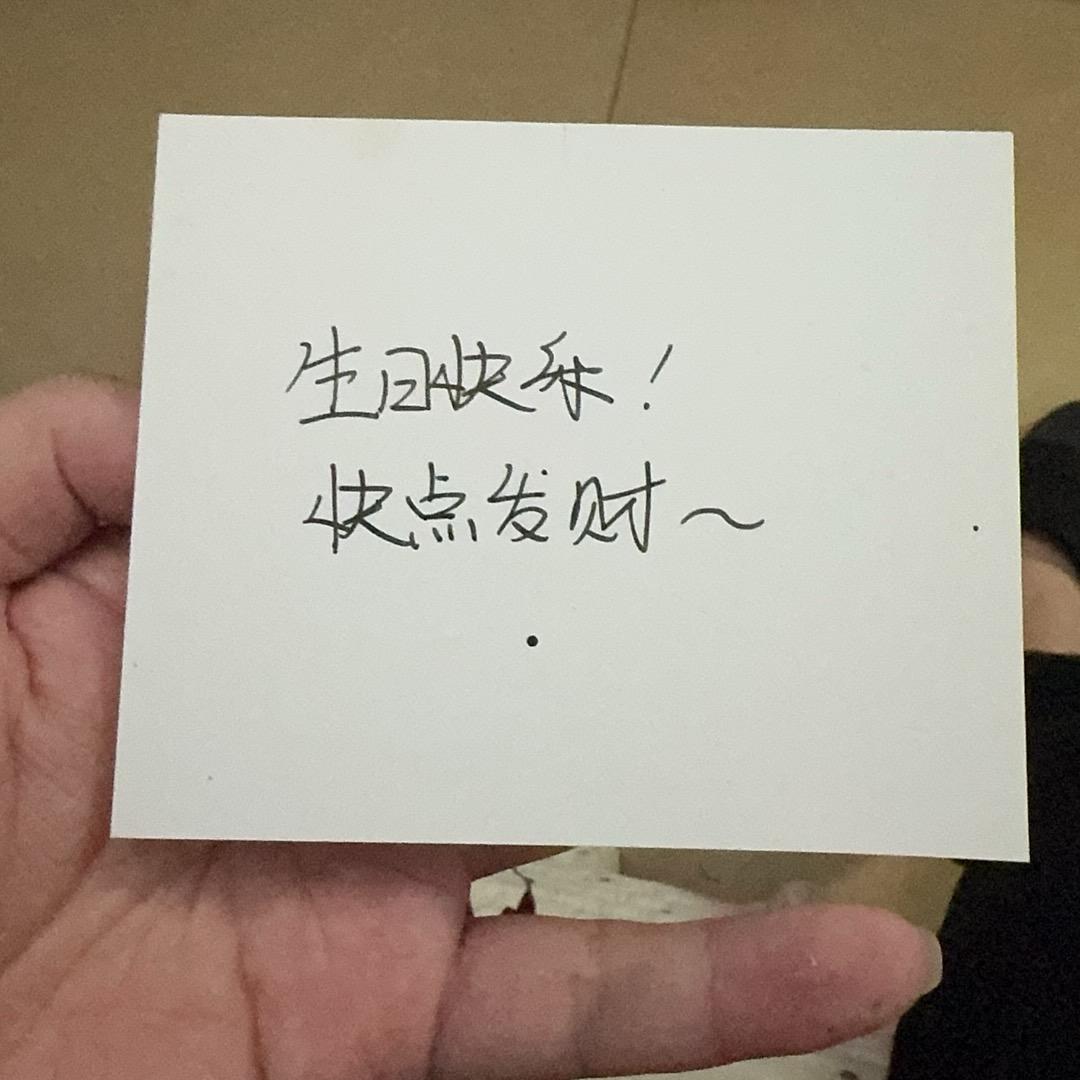 生日快乐!
快点发财~